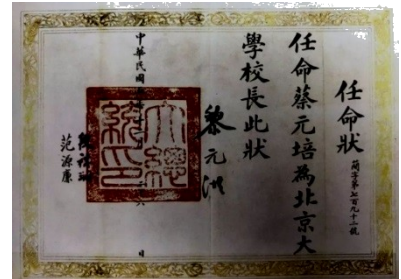 任命狀
簡字第七百九十二號
任命蔡元培為北京大
學校長此狀
黎元洪
大總
統印
中華民國
日
范源廉